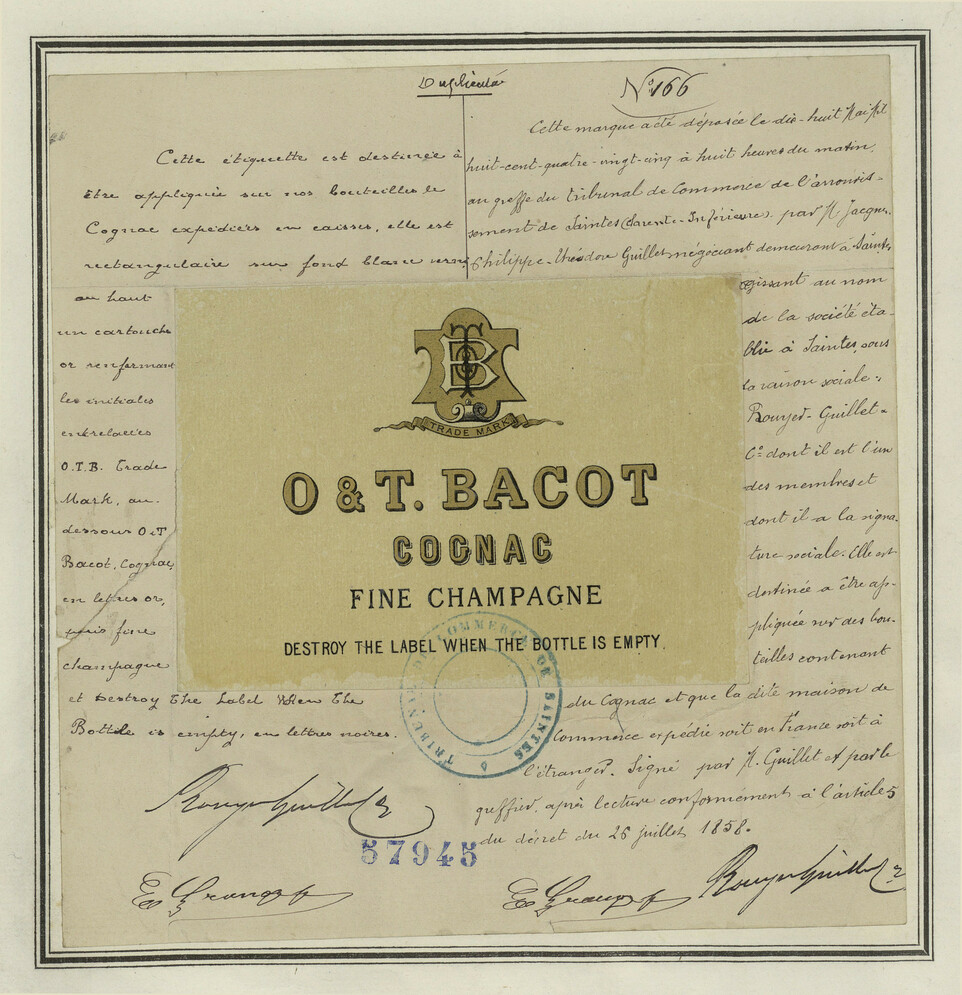 Duplicata
Nº 166
Cette étiquette est destinée à
être appliquée sur nos bouteilles de
Cognac expédiées en caisses, elle est
rectangulaire sur fond blanc verni
au haut
un cartouche
or renfermant
les initiales
entrelacées
O.T.B. Trade
Mark, au
dessous O et T
Bacot, Cognac,
en lettres or,
puis fine
champagne
et Destroy The Label When The
Bottle is empty, en lettres noires.
Rouyer Guillet Co
Cette marque a été déposée le dix-huit Mai Mil
huit-cent-quatre-vingt-cinq à huit heures du matin,
au greffe du tribunal de Commerce de l'arrondis-
sement de Saintes (Charente-Inférieure) par M Jacques
Philippe-Théodore Guillet négociant demeurant à Saintes,
agissant au nom
de la société éta-
blie à Saintes, sous
la raison sociale:
Rouyer-Guillet &
Cº dont il est l'un
des membres et
dont il a la signa-
ture sociale. Elle est
destinée à être ap-
pliquée sur des bou-
teilles contenant
du Cognac et que la dite maison de
Commerce expédie soit en France soit à
l'étranger. Signé par M. Guillet et par le
greffier, après lecture conformément à l'article 5
du décret du 26 juillet 1858.
Rouyer Guillet Co
OTB
TRADE MARK
O & T. BACOT
COGNAC
FINE CHAMPAGNE
DESTROY THE LABEL WHEN THE BOTTLE IS EMPTY.
TRIBUNAL DE COMMERCE DE SAINTES
57945